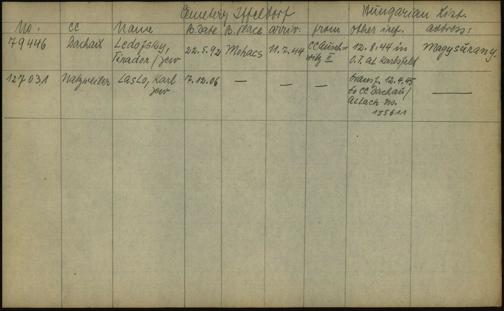 Cemetery Iffeldorf Hungarian List.
No. CC Name B. Date B. Place arriv. from other inf. address:
79446 Dachau Ledofsky, 22.5.92 Mohacs 11.7.44 CC Ausch- 12.8.44 in Magysurany.
Tivador / jew witz II O.T. AL Karlsfeld
127031 Natzweiler Laslo, Karl 7.12.06 — — — transf. 12.4.45
jew to CC Dachau / ———
Allach No.
155611